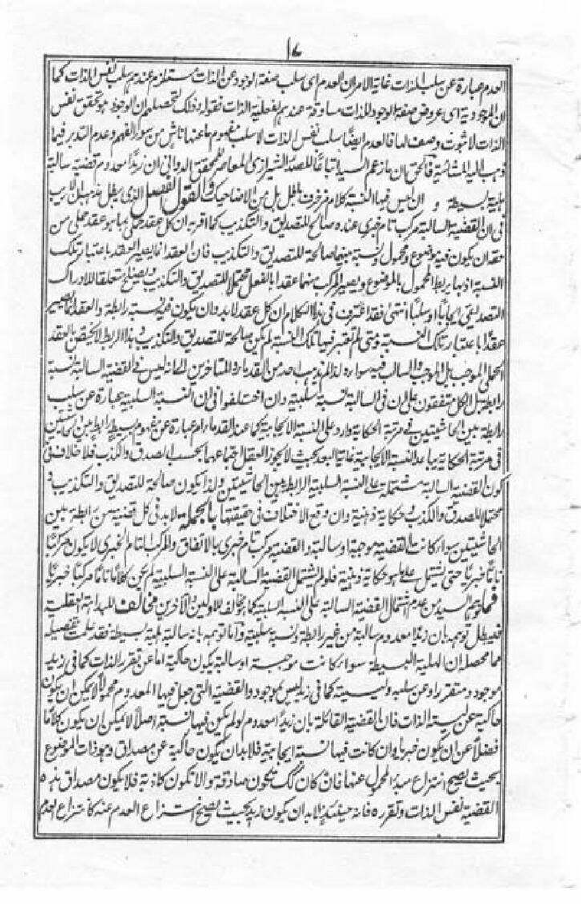 ١٧
العدم عبارة عن سلب الذات غاية الامر ان العدم اى سلب صفة الوجود عن الذات مستلزم عندهم سلب نفس الذات كما
ان الموجودية اى عروض صفة الوجود للذات مساوقة عندهم لفعلية الذات فقوله وذلك لتحصلهم ان الوجود هو تحقق نفس
الذات لا ثبوت وصف لها فالعدم ايضا سلب نفس الذات لا سلب مفهوم ما عنها ناش من سوء الفهم وعدم التدبر فيما
ذهب اليه المشائية فالحق ان ما زعم السيد اتباعا للصدر الشيرازى المعاصر للمحقق الدوانى ان زيدا معدوم قضية سالبة
هلية بسيطة و ان ليس فيها النسبة كلام مزخرف باطل بل من الاضاحيك والقول الفصل الذى يبطل مذهبه ان لا ريب
فى ان القضية السالبة مركب تام خبرى عنده صالح للتصديق والتكذيب كما اقر به ان كل عقد حملى بما هو عقد حملى من
حقه ان يكون فيه موضوع ومحمول ونسبة بينهما صالحة للتصديق والتكذيب فان العقد انما يصير العقد باعتبار تلك
النسبة اذ بها يربط المحمول بالموضوع ويصير المركب منهما عقدا بالفعل محتملا للتصديق والتكذيب ويصلح متعلقا للادراك
التصديقى ايجابا او سلبا انتهى فقد اعترف فى هذا الكلام ان كل عقد لابد وان يكون فيه نسبة رابطة والعقد انما يصير
عقدا باعتبار تلك النسبة ومتى لم تعتبر فيها تلك النسبة لم يكن صالحة للتصديق والتكذيب وهذا الربط لا يختص بالعقد
الحملى الموجب بل الموجب والسالب فيه سواء اذ لم يذهب احد من القدماء والمتاخرين الى انه ليس فى القضية السالبة نسبة
رابطة بل الكل متفقون على ان فى السالبة نسبة سلبية وان اختلفوا فى ان النسبة السلبية عبارة عن سلب
رابطة بين الحاشيتين فى مرتبة الحكاية وارد على النسبة الايجابية كما هو عن القدماء ام عبارة عن مفهوم بسيط رابط بين الشيئين
فى مرتبة الحكاية يباعد النسبة الايجابية غاية البعد بحيث لا يجوز العقل اجتماعهما بحسب الصدق والكذب فلا خلاف فى
كون القضية السالبة مشتملة على النسبة السلبية الرابطة بين الحاشيتين ولذا يكون صالحة للتصديق والتكذيب و
محتملا للصدق والكذب وحكاية ذهنية وان وقع الاختلاف فى حقيقتها بالجملة ولابد فى كل قضية من رابطة بين
الحاشيتين سواء كانت القضية موجبة او سالبة والقضية مركب تام خبرى بالاتفاق والمركب التام الخبرى لا يكون مركبا
تاما خبريا حتى يشتمل على ما هو حكاية ذهنية فلو لم يشتمل القضية السالبة على النسبة السلبية لم يكن كلاما تاما مركبا خبريا
فما زعم السيد من عدم اشتمال القضية السالبة على النسبة السلبية كما يخالف للاولين والآخرين مخالف للبداهة العقلية
فقد بطل توهمه بان زيدا معدوم سالبة من غير رابطة ونسبة سلبية واما توهمه بانه سالبة هلية بسيطة فقد علمت تفصيله
مما محصله ان الهلية البسيطة سواء كانت موجبة او سالبة يكون حاكية اما عن تقرر الذات كما فى زيد
موجود ومتقرر او عن سلبه وليسيته كما فى زيد ليس بموجود والقضية التى جعل فيها المعدوم محمولا لا يمكن ان يكون
حاكية عن ليسية الذات فان القضية القائلة بان زيدا معدوم لو لم يكن فيها نسبة اصلا لا يمكن ان يكون كلاما
فضلا عن ان يكون خبريا وان كانت فيها نسبة ايجابية فلابد ان يكون حاكية عن مصداق وهو ذات الموضوع
بحيث يصح انتزاع مبدء المحمول عنها فان كان كذلك تكون صادقة والا تكون كاذبة فلا يكون مصداق هذه
القضية نفس الذات وتقرره فانه حينئذ لابد ان يكون زيد بحيث يصح انتزاع العدم عنه كانتزاع العدم